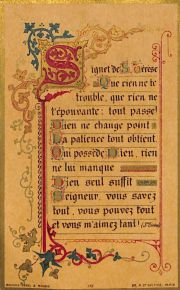 Signet de S. Térèse
Que rien ne te
trouble, que rien ne
t'épouvante: tout passe
Dieu ne change point
La patience tout obtient
Qui possède Dieu, rien
ne lui manque
Dieu seul suffit
Seigneur, vous savez
tout, vous pouvez tout
et vous m'aimez tant!